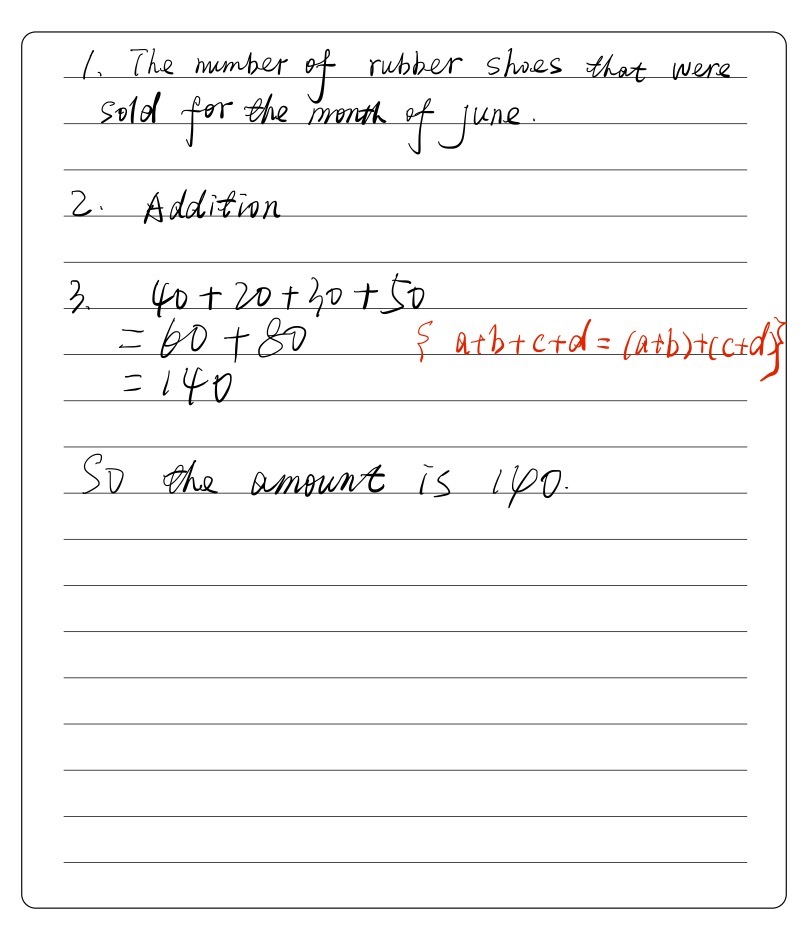 1. The number of rubber shoes that were
sold for the month of june.
2. Addition
3. 40+20+30+50
=60+80 { a+b+c+d=(a+b)+(c+d)}
=140
So the amount is 140.